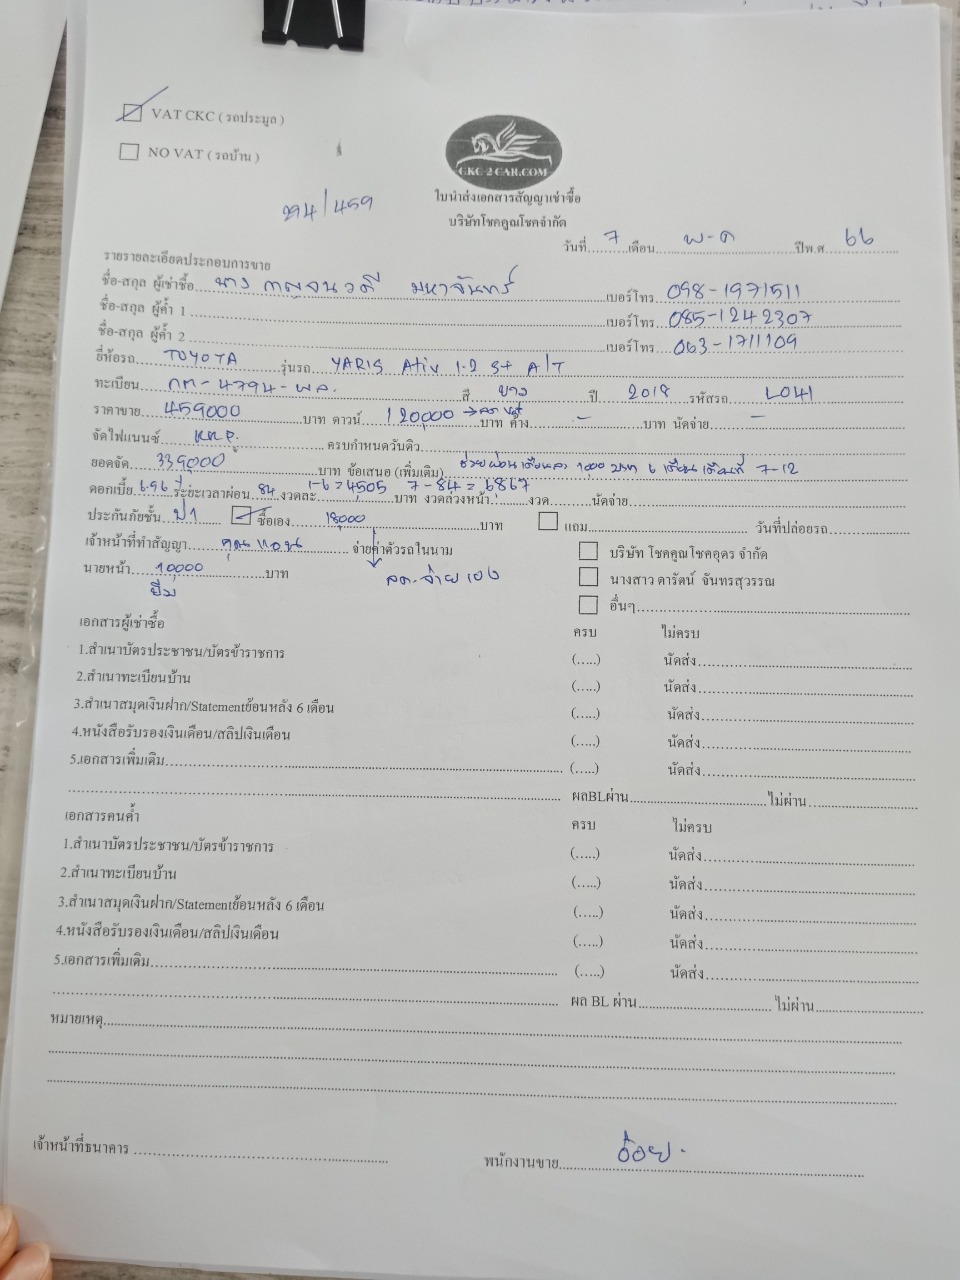 VAT CKC ( รถประมูล )
NO VAT ( รถบ้าน )
CKC 2 CAR.COM
ใบนำส่งเอกสารสัญญาเช่าซื้อ
294/459
บริษัทโชคคูณโชคจำกัด
วันที่ 7 เดือน พ-ค ปีพ.ศ. 66
รายรายละเอียดประกอบการขาย
ชื่อ-สกุล ผู้เช่าซื้อ นาง กาญจนวดี มหาจันทร์ เบอร์โทร 098-1971511
ชื่อ-สกุล ผู้ค้ำ 1 เบอร์โทร 085-1242307
ชื่อ-สกุล ผู้ค้ำ 2 เบอร์โทร 063-1711109
ยี่ห้อรถ TOYOTA รุ่นรถ YARIS Ativ 1.2 S+ A/T
ทะเบียน กท-4794-พล. สี ขาว ปี 2018 รหัสรถ L041
ราคาขาย 459000 บาท ดาวน์ 120000 → ลด Vat บาท ค้าง - บาท นัดจ่าย -
จัดไฟแนนซ์ KKP. ครบกำหนดวันดิว
ยอดจัด 339,000 บาท ข้อเสนอ (เพิ่มเติม) ช่วยผ่อนเดือนละ 1000 บาท 6 เดือน เดือนที่ 7-12
ดอกเบี้ย 6.96 ระยะเวลาผ่อน 84 งวดละ 1-6 = 4505 7-84 = 6867 บาท งวดล่วงหน้า งวด นัดจ่าย
ประกันภัยชั้น ป1 ซื้อเอง 18000 บาท แถม วันที่ปล่อยรถ
เจ้าหน้าที่ทำสัญญา คุณแอน จ่ายค่าตัวรถในนาม บริษัท โชคคูณโชคอุดร จำกัด
นายหน้า 10000 บาท ลด.จ่ายเอง นางสาว ดารัตน์ จันทรสุวรรณ
ยืม อื่นๆ
เอกสารผู้เช่าซื้อ ครบ ไม่ครบ
1.สำเนาบัตรประชาชน/บัตรข้าราชการ (.....) นัดส่ง
2.สำเนาทะเบียนบ้าน (.....) นัดส่ง
3.สำเนาสมุดเงินฝาก/Statementย้อนหลัง 6 เดือน (.....) นัดส่ง
4.หนังสือรับรองเงินเดือน/สลิปเงินเดือน (.....) นัดส่ง
5.เอกสารเพิ่มเติม (.....) นัดส่ง
ผลBLผ่าน ไม่ผ่าน
เอกสารคนค้ำ ครบ ไม่ครบ
1.สำเนาบัตรประชาชน/บัตรข้าราชการ (.....) นัดส่ง
2.สำเนาทะเบียนบ้าน (.....) นัดส่ง
3.สำเนาสมุดเงินฝาก/Statementย้อนหลัง 6 เดือน (.....) นัดส่ง
4.หนังสือรับรองเงินเดือน/สลิปเงินเดือน (.....) นัดส่ง
5.เอกสารเพิ่มเติม (.....) นัดส่ง
ผล BL ผ่าน ไม่ผ่าน
หมายเหตุ
เจ้าหน้าที่ธนาคาร พนักงานขาย อ้อย.